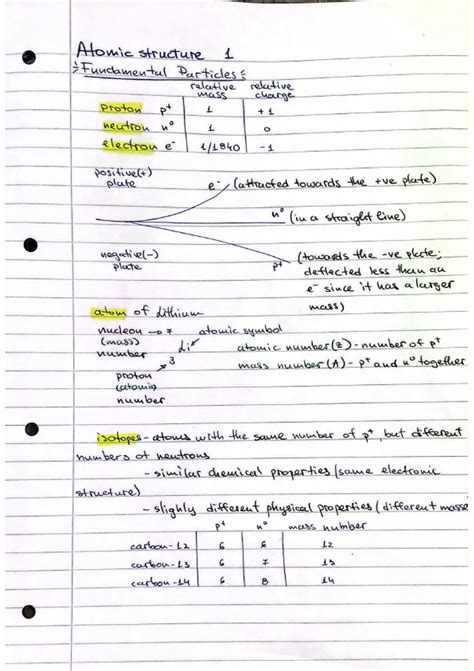 Atomic structure 1
Fundamental Particles:
relative mass relative charge
proton p⁺ 1 +1
neutron n⁰ 1 0
electron e⁻ 1/1840 -1
positive(+) plate
e⁻ (attracted towards the +ve plate)
n⁰ (in a straight line)
negative(-) plate
p⁺ (towards the -ve plate;
deflected less than an
e⁻ since it has a larger
mass)
atom of lithium
nucleon → 7 atomic symbol
(mass) number Li atomic number(Z) - number of p⁺
3 mass number (A) - p⁺ and n⁰ together
proton
(atomic)
number
isotopes - atoms with the same number of p⁺, but different
numbers of neutrons
- similar chemical properties (same electronic
structure)
- slighly different physical properties (different masse
p⁺ n⁰ mass number
carbon-12 6 6 12
carbon-13 6 7 13
carbon-14 6 8 14